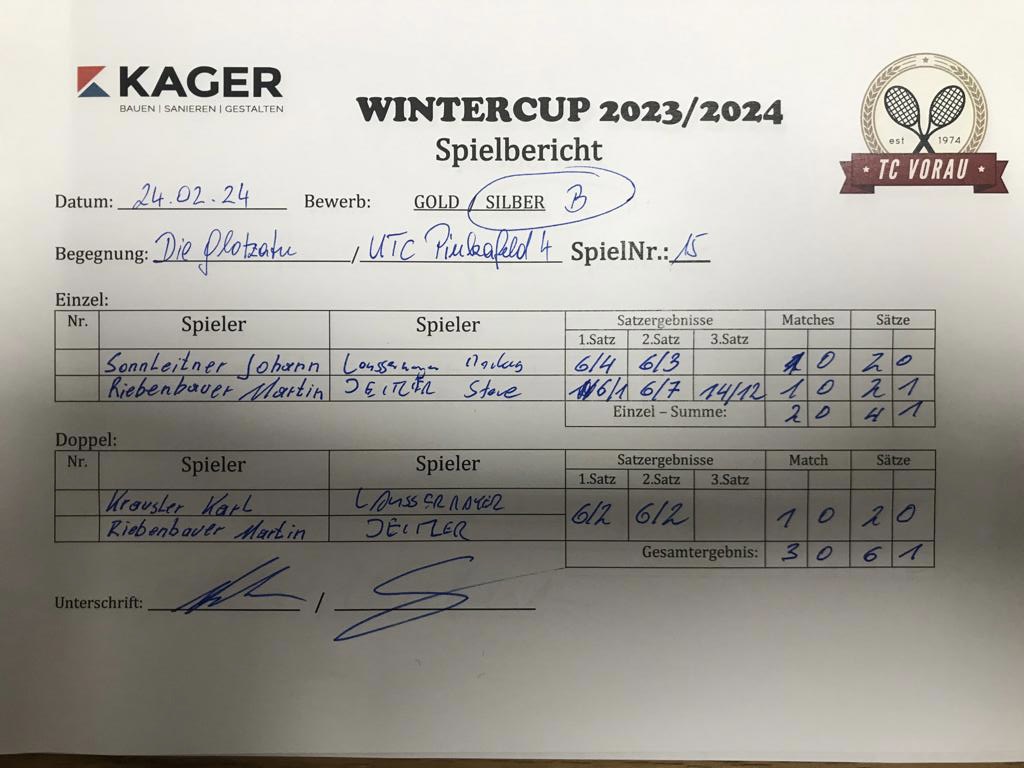 KAGER
BAUEN | SANIEREN | GESTALTEN
WINTERCUP 2023/2024
Spielbericht
est 1974
TC VORAU
Datum: 24.02.24 Bewerb: GOLD / SILBER B
Begegnung: Die / UTC Pinkafeld 4 SpielNr.: 15
Einzel:
Nr. Spieler Spieler Satzergebnisse Matches Sätze
1.Satz 2.Satz 3.Satz
Sonnleitner Johann 6/4 6/3 1 0 2 0
Riebenbauer Martin JEITLER Steve 6/1 6/7 14/12 1 0 2 1
Einzel – Summe: 2 0 4 1
Doppel:
Nr. Spieler Spieler Satzergebnisse Match Sätze
1.Satz 2.Satz 3.Satz
Krausler Karl
6/2 6/2 1 0 2 0
Riebenbauer Martin JEITLER
Gesamtergebnis: 3 0 6 1
Unterschrift: /